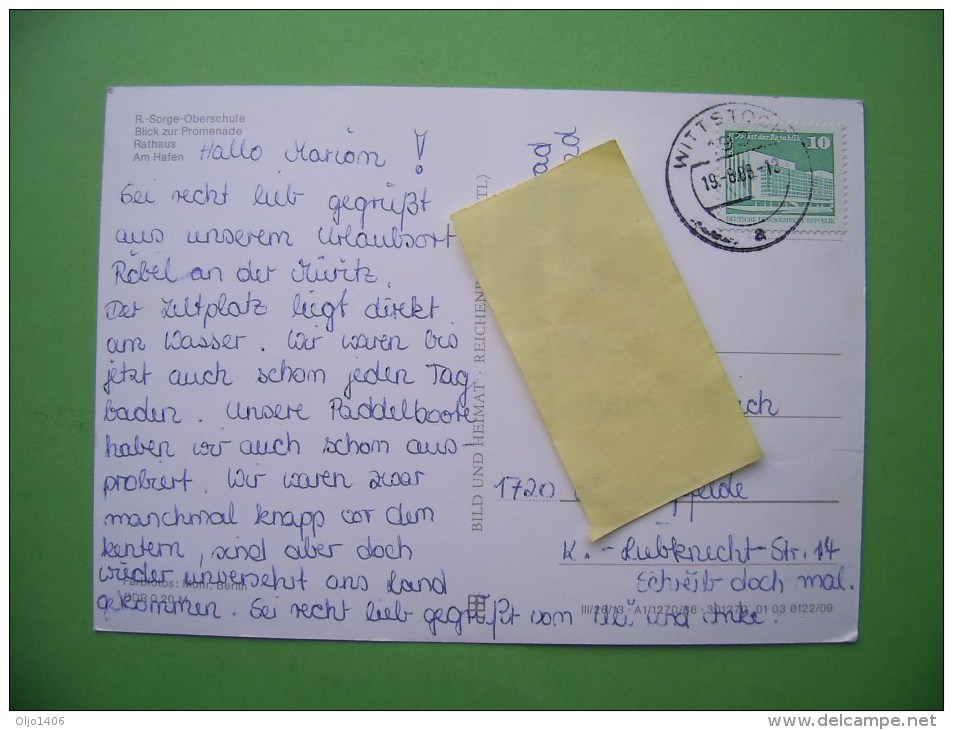 R.-Sorge-Oberschule
Blick zur Promenade
Rathaus
Am Hafen
Hallo Marion!
Sei recht lieb gegrüßt
aus unserem Urlaubsort
Röbel an der Müritz.
Der Zeltplatz liegt direkt
am Wasser. Wir waren bis
jetzt auch schon jeden Tag
baden. Unsere Paddelboote
haben wir auch schon aus-
probiert. Wir waren zwar
manchmal knapp vor dem
kentern, sind aber doch
wieder unversehrt ans Land
gekommen. Sei recht lieb gegrüßt vom und Anke.
Farbfotos: Mohr, Berlin
DDR 0,20 M
BILD UND HEIMAT · REICHENB TL)
WITTSTOCK
19.-8.86-13
a
10
DEUTSCHE DEMOKRATISCHE REPUBLIK
1720
felde
K.-Liebknecht-Str. 14
Schreib doch mal.
III/26/13 A1/1270/86 301270 01 03 0122/09
Oljo1406
www.delcampe.net